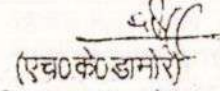 (एच0के0डामोरे)